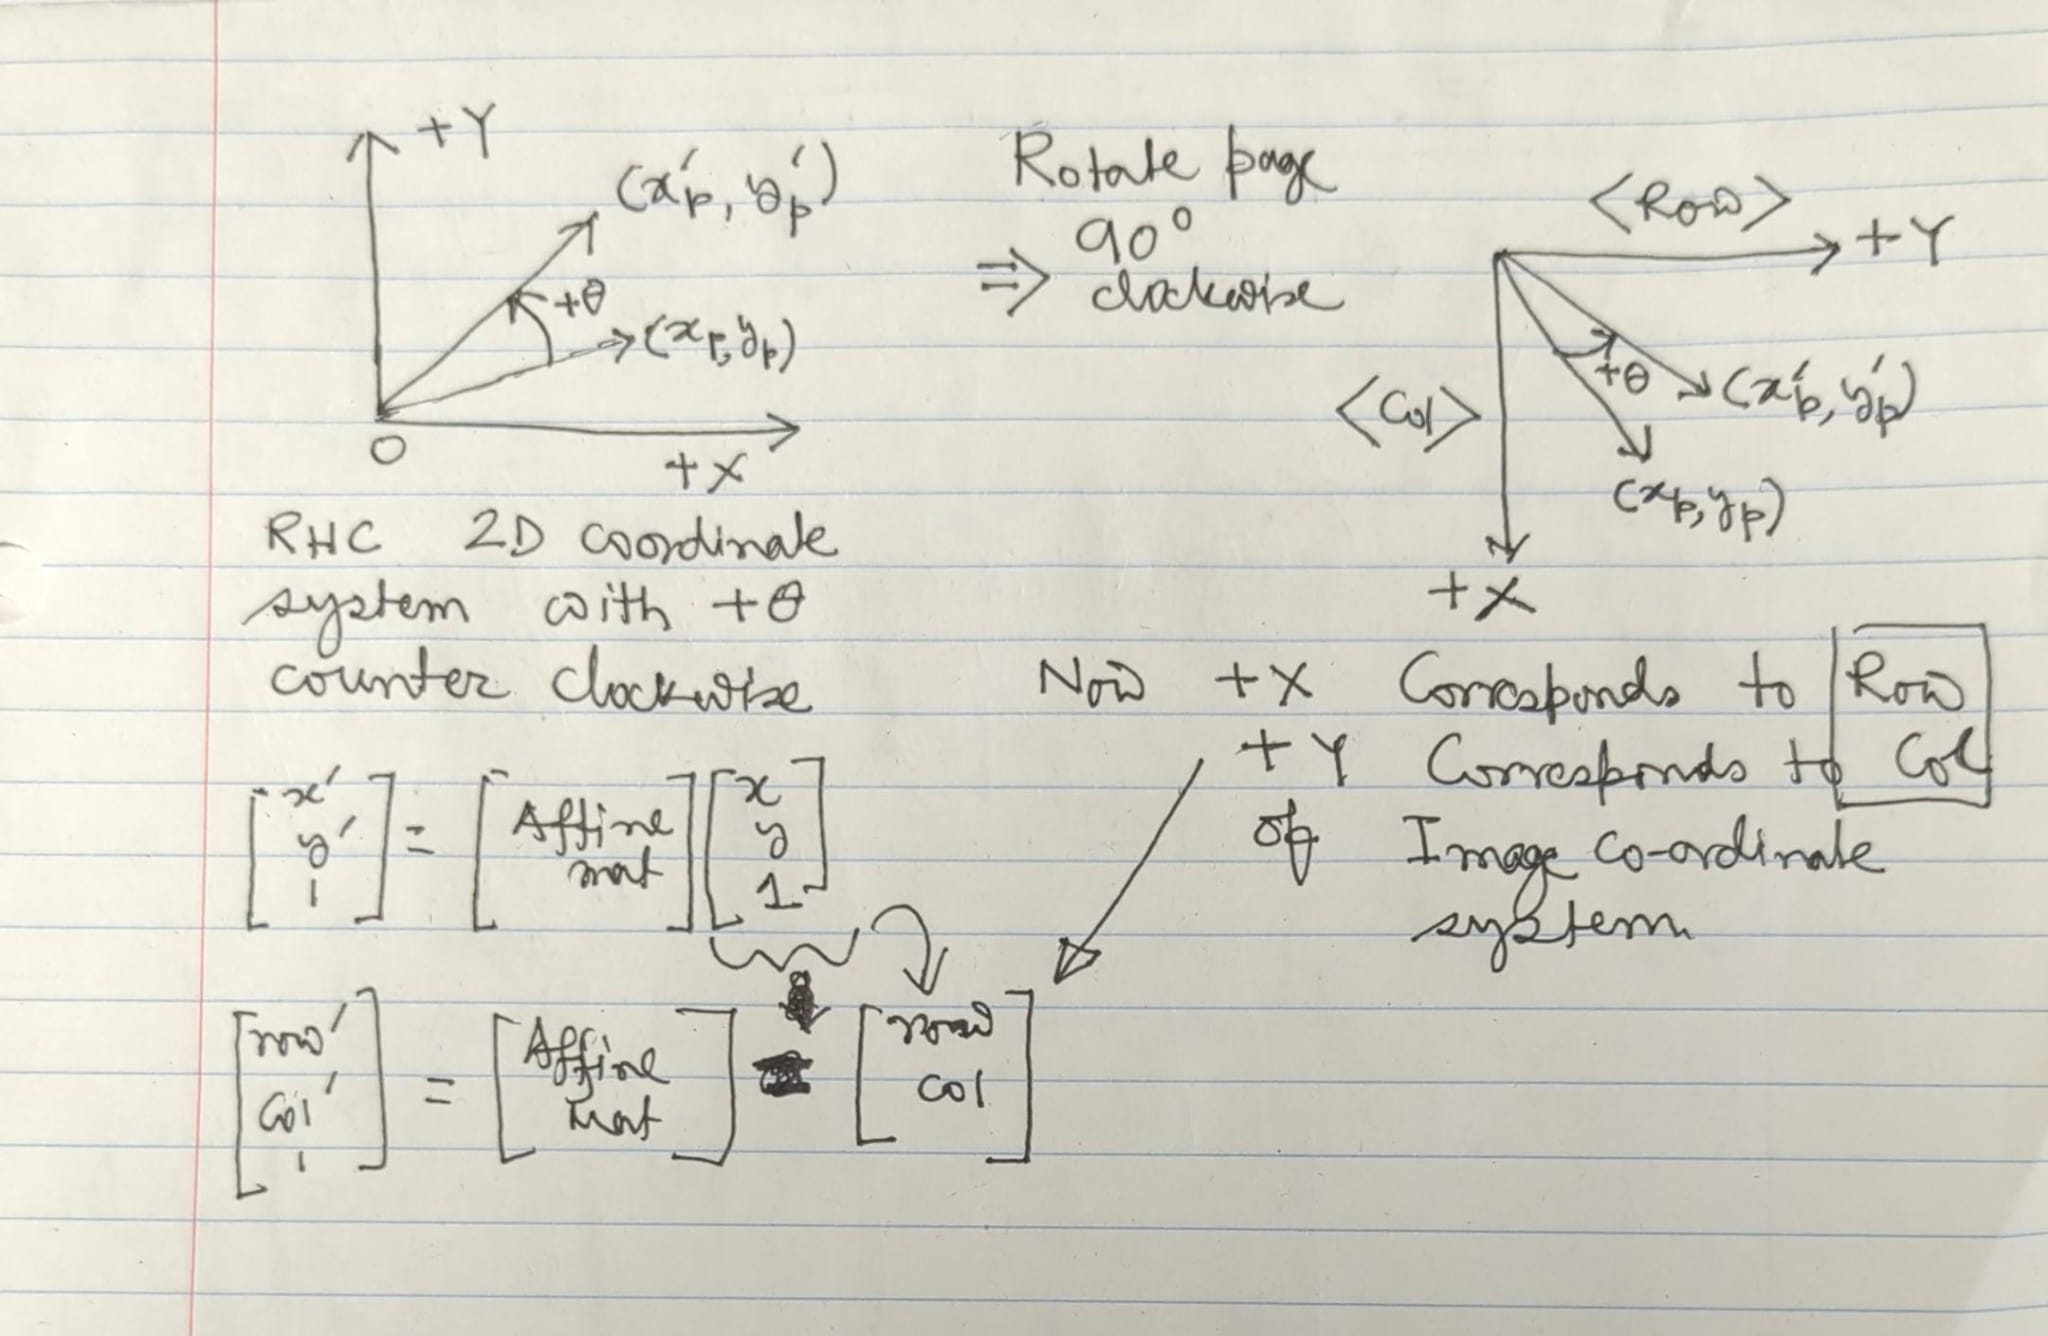 +Y
(x'p, y'p)
+θ
(xp, yp)
O
+X
RHC 2D coordinate
system with +θ
counter clockwise
Rotate page
90°
⇒ clockwise
<Row>
+Y
<Col>
+θ
(x'p, y'p)
(xp, yp)
+X
Now +X Corresponds to Row
+Y Corresponds to Col
of Image co-ordinate
system
[x' y' 1] = [Affine mat] [x y 1]
[row' Col' 1] = [Affine Mat] [row col]